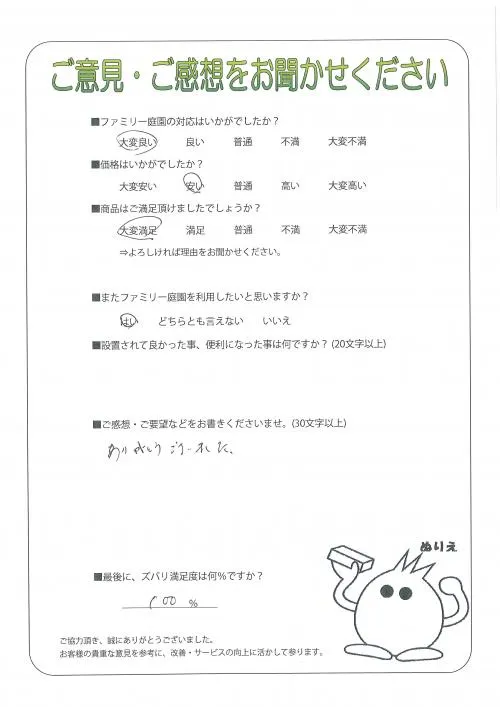 ご意見・ご感想をお聞かせください
■ファミリー庭園の対応はいかがでしたか？
大変良い 良い 普通 不満 大変不満
■価格はいかがでしたか？
大変安い 安い 普通 高い 大変高い
■商品はご満足頂けましたでしょうか？
大変満足 満足 普通 不満 大変不満
⇒よろしければ理由をお聞かせください。
■またファミリー庭園を利用したいと思いますか？
はい どちらとも言えない いいえ
■設置されて良かった事、便利になった事は何ですか？(20文字以上)
■ご感想・ご要望などをお書きくださいませ。(30文字以上)
ありがとうございました。
ぬりえ
■最後に、ズバリ満足度は何％ですか？
100 %
ご協力頂き、誠にありがとうございました。
お客様の貴重な意見を参考に、改善・サービスの向上に活かして参ります。